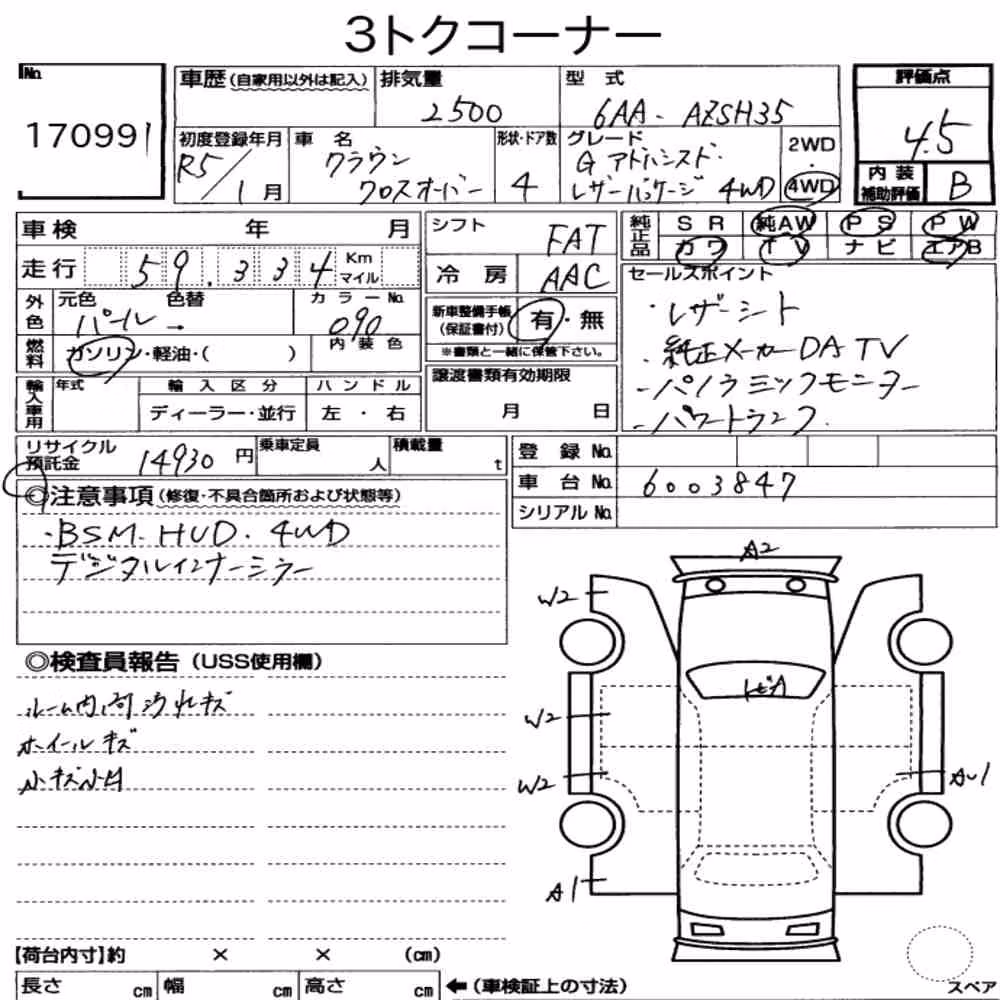 3トクコーナー
No.
170991
車歴 (自家用以外は記入)
排気量
2500
型 式
6AA - AZSH35
評価点
4.5
初度登録年月
R5/1月
車 名
クラウン
クロスオーバー
形状・ドア数
4
グレード
G アドバンスド・
レザーパッケージ 4WD
2WD
・
4WD
内 装
補助評価
B
車検 年 月
シフト
FAT
純正品
SR 純AW PS PW
カワ TV ナビ エアB
走行 59.334 Km マイル
冷 房
AAC
セールスポイント
・レザーシート
・純正メーカーDA TV
-パノラミックモニター
-パワートランク
外色
元色 色替
パール →
カラーNo.
090
新車整備手帳
(保証書付)
有・無
※書類と一緒に保管下さい。
燃料
ガソリン・軽油・( )
内装色
輸入車用
年式
輸入区分
ハンドル
ディーラー・並行
左・右
譲渡書類有効期限
月 日
リサイクル
預託金
14930円
乗車定員
人
積載量
t
登 録 No.
車 台 No.
6003847
シリアル No.
◎注意事項 (修復・不具合箇所および状態等)
・BSM. HUD. 4WD
デジタルインナーミラー
◎検査員報告 (USS使用欄)
ルーム内 汚れキズ
ホイールキズ
小キズ小凹
A2
W2
トビA
W2
W2
A1
【荷台内寸】約 × × (cm)
長さ cm 幅 cm 高さ cm
←(車検証上の寸法)
スペア